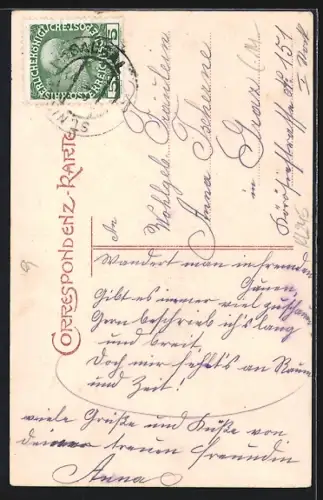 CORRESPONDENZ-KARTE
KAISERLICHEKÖNIGLICHE
ÖSTERREICHISCHE
5 5
An
Wohlgeb. Fräulein
Anna
in Graz
Körösistrasse No 151
I. Stock
Wandert man in fremden
Gauen,
Gibt es immer viel zu schauen
Gern beschrieb ich's lang
und breit,
Doch mir fehlt's an Raum
und Zeit!
viele Grüße und Küße von
deiner treuen Freundin
Anna